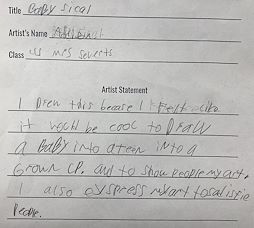 Title Baby sical
Artist's Name
Class US mrs severts
Artist Statement
I Drew this becase I Felt like
it would be cool to Draw
a Baby into a teen into a
Grown up. and to show people my art.
I also exspress my art to satisfie
People.